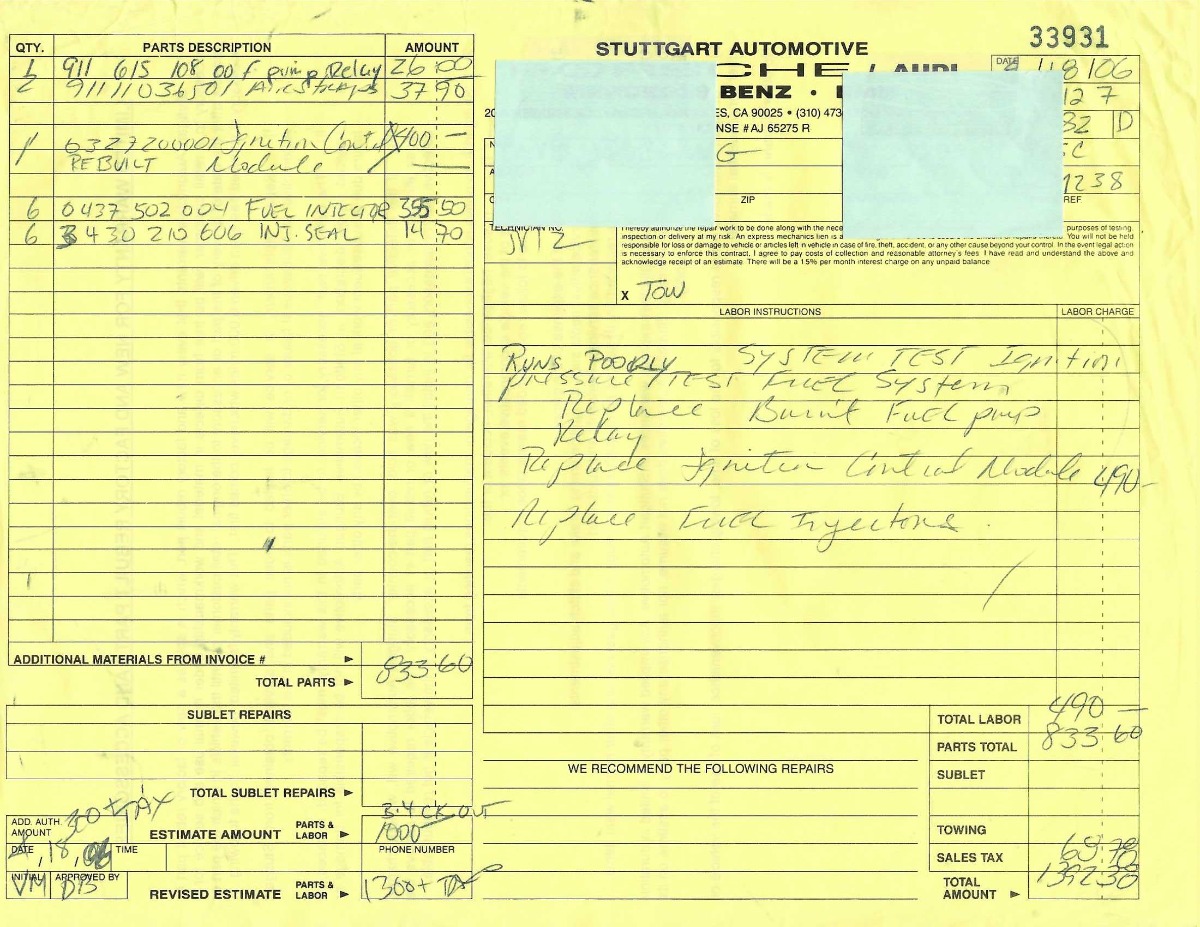 33931
STUTTGART AUTOMOTIVE
CHE / AUDI
BENZ •
ES, CA 90025 • (310) 473
NSE #AJ 65275 R
DATE 4/18/06
127
82 D
G
SC
1238
ZIP
REF
TECHNICIAN NO.
JV12
I hereby authorize the repair work to be done along with the nece purposes of testing,
inspection or delivery at my risk. An express mechanics lien is a You will not be held
responsible for loss or damage to vehicle or articles left in vehicle in case of fire, theft, accident, or any other cause beyond your control. In the event legal action
is necessary to enforce this contract, I agree to pay costs of collection and reasonable attorney's fees. I have read and understand the above and
acknowledge receipt of an estimate. There will be a 1.5% per month interest charge on any unpaid balance
X TOW
QTY. PARTS DESCRIPTION AMOUNT
1 911 615 108 00 f pump Relay 26 00
2 91111036501 37.90
1 Ignition Control 400 —
REBUILT Module
6 0 437 502 004 FUEL INJECTOR 355.50
6 3 430 210 606 INJ. SEAL 14 70
ADDITIONAL MATERIALS FROM INVOICE #
TOTAL PARTS 833.60
SUBLET REPAIRS
TOTAL SUBLET REPAIRS
ADD. AUTH. AMOUNT 300 + TAX
3.4 CK OUT
ESTIMATE AMOUNT PARTS & LABOR 1000
DATE 4,18,06 TIME
PHONE NUMBER
INITIAL VM APPROVED BY DB
REVISED ESTIMATE PARTS & LABOR 1300 + TAX
LABOR INSTRUCTIONS LABOR CHARGE
RUNS POORLY SYSTEM TEST Ignition
pressure / TEST FUEL System
Replace Burnt FUEL pump
Relay
Replace Ignition Control Module 490-
Replace FUEL Injectors.
WE RECOMMEND THE FOLLOWING REPAIRS
TOTAL LABOR 490 —
PARTS TOTAL 833.60
SUBLET
TOWING
SALES TAX 68.78
TOTAL AMOUNT 1392.38